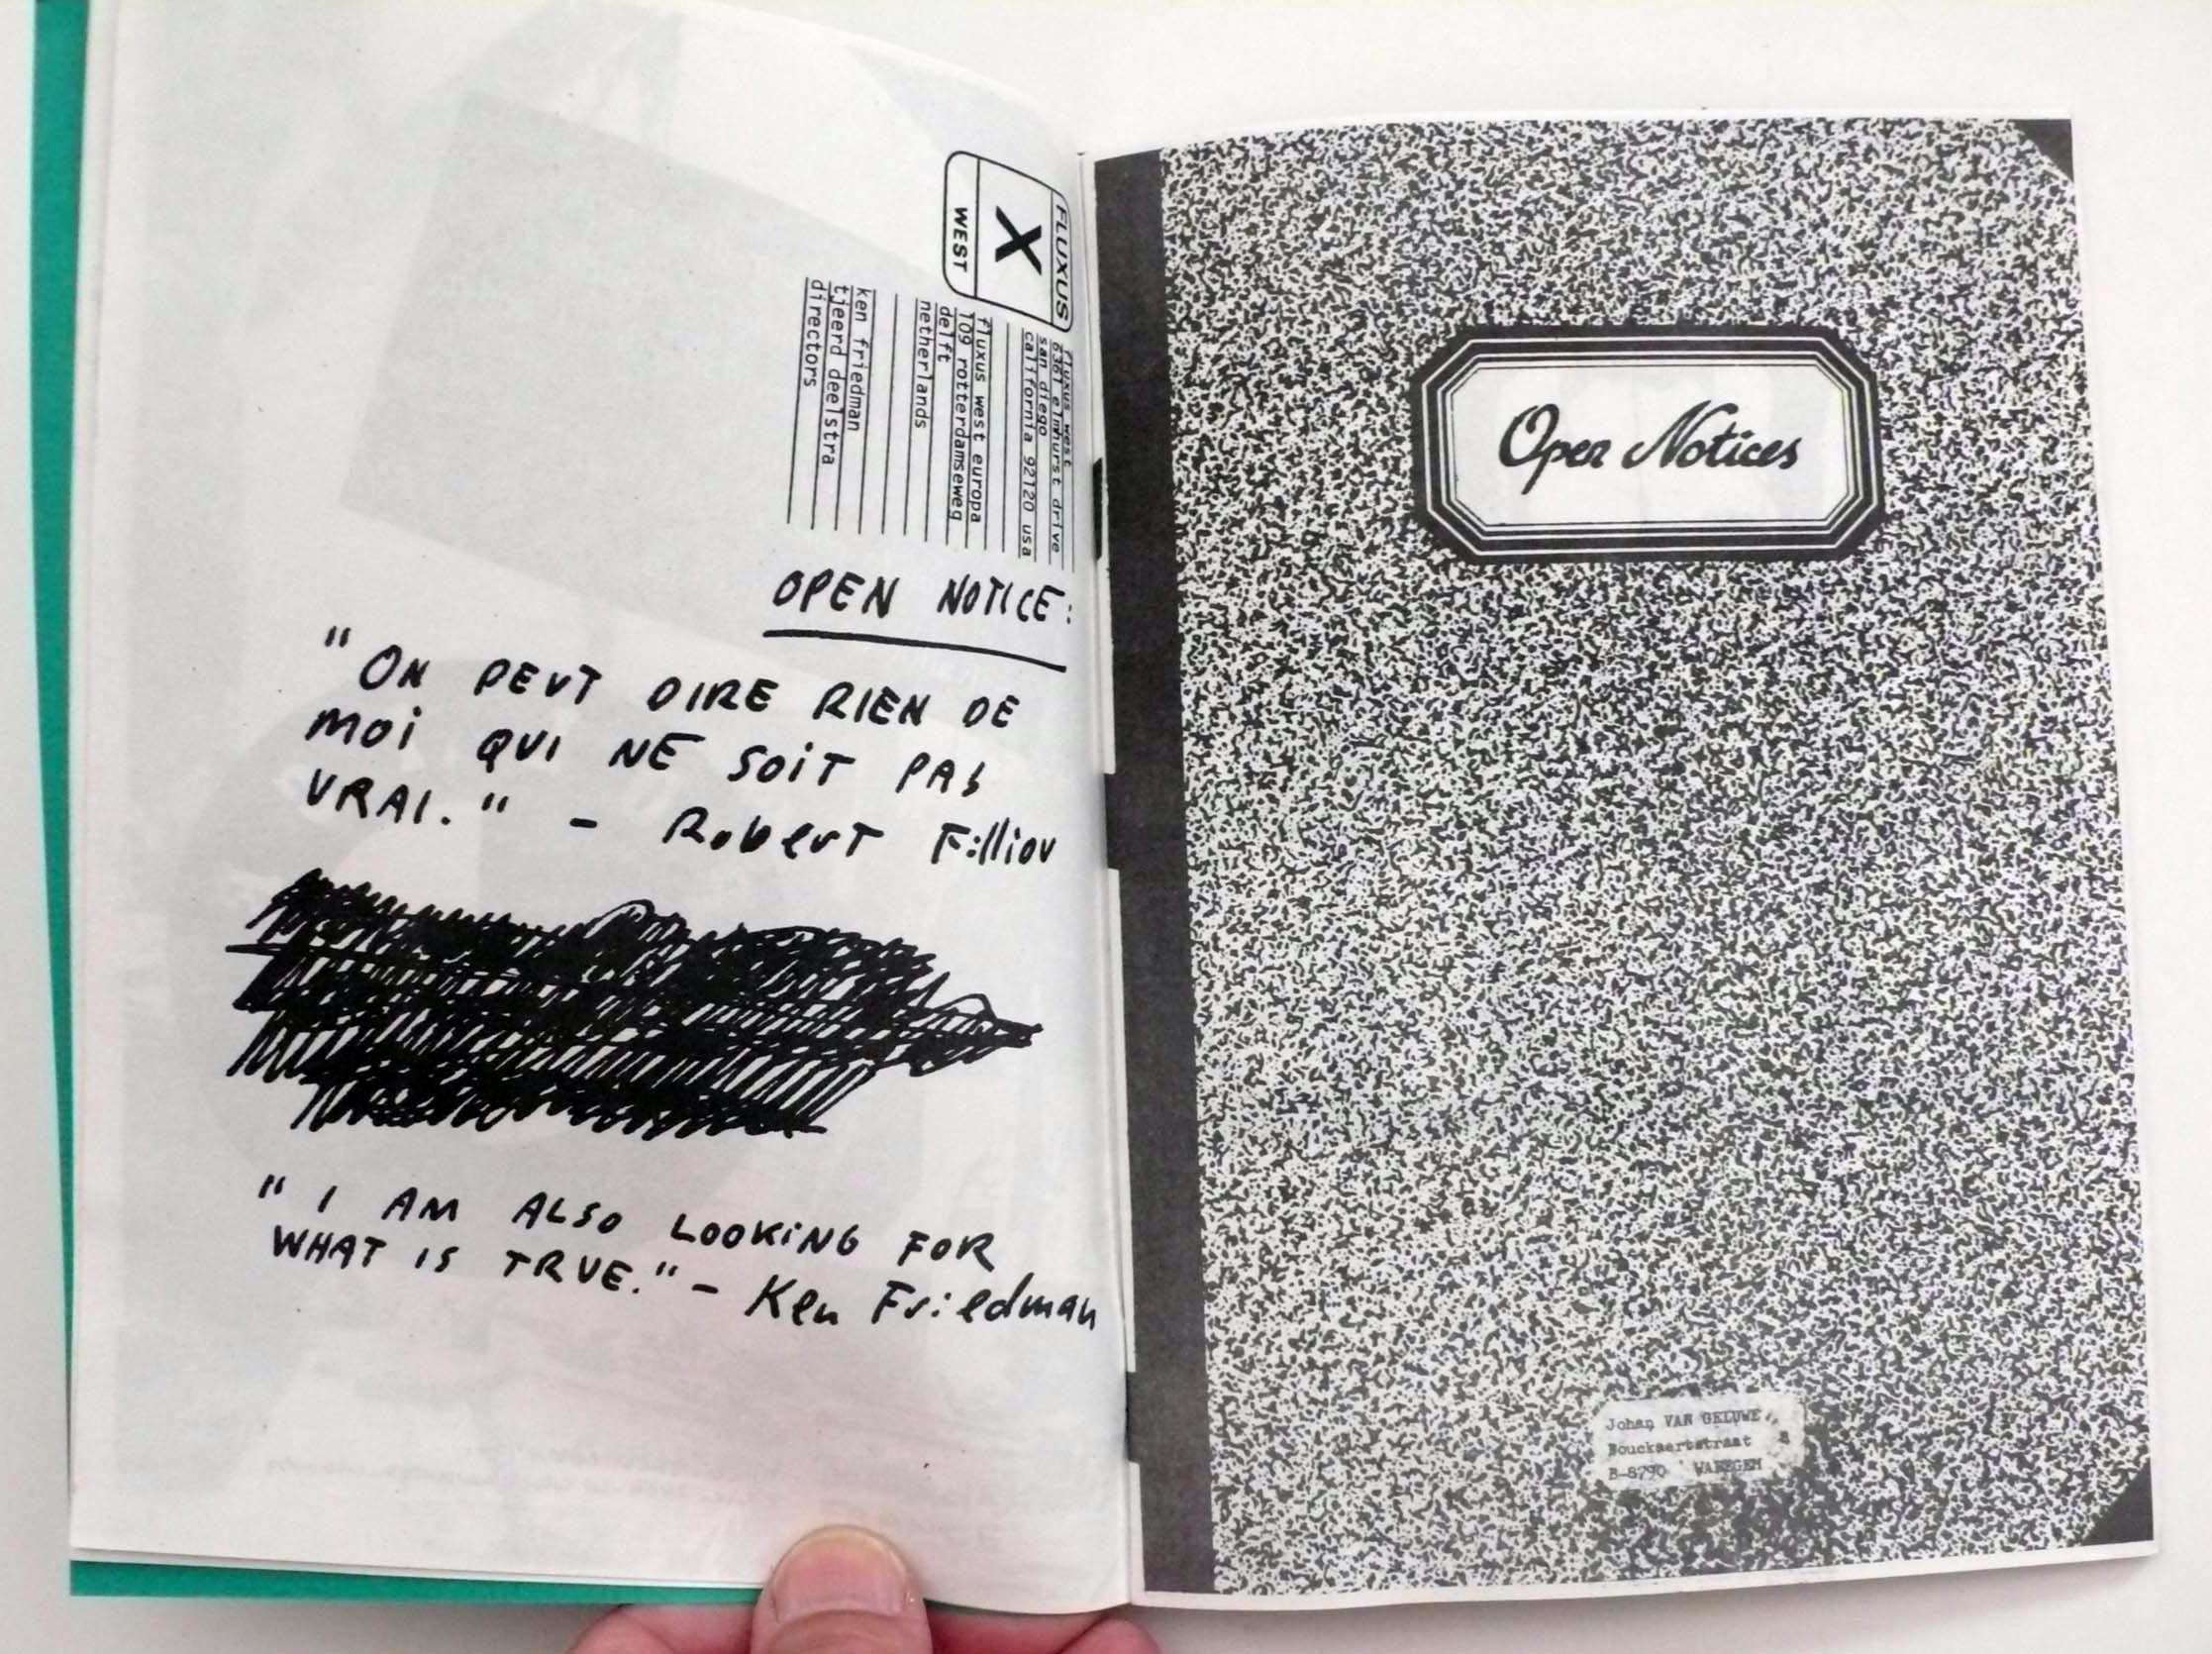 FLUXUS
X
WEST
fluxus west
6361 elmhurst drive
san diego
california 92120 usa
fluxus west europa
109 rotterdamseweg
delft
netherlands
ken friedman
tjeerd deelstra
directors
OPEN NOTICE:
"ON PEUT DIRE RIEN DE
MOI QUI NE SOIT PAS
VRAI." - Robert Filliou
"I AM ALSO LOOKING FOR
WHAT IS TRUE." - Ken Friedman
Open Notices
Johan VAN GELUWE,
Bouckaertstraat 8
B-8790 WAREGEM